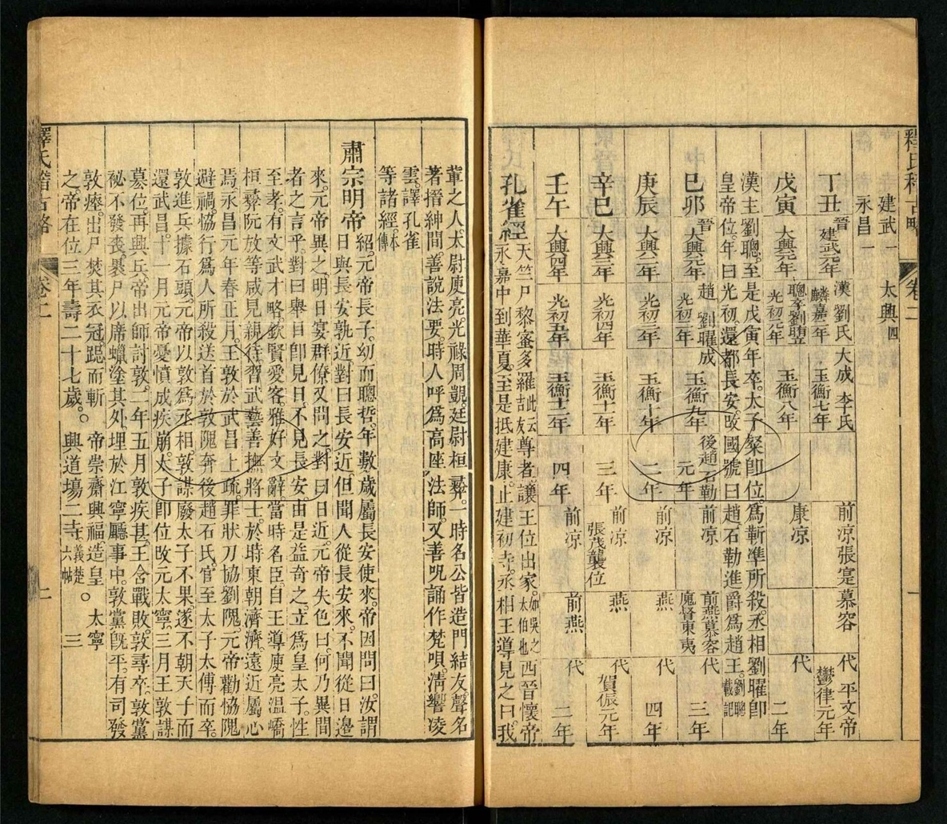 釋氏稽古略 卷二 一
建武一 太興四
永昌一
丁丑 晉 建武元年 漢 劉氏 麟嘉二年 大成 李氏 玉衡七年 前凉張寔 慕容 代 平文帝 鬱律元年
戊寅 大興元年 聰卒劉曜立 光初元年 玉衡八年 康凉 代 二年
漢主劉聰。至是戊寅年卒。太子粲即位。爲靳準所殺。丞相劉曜即
皇帝位。年曰光初。還都長安。改國號曰趙。石勒進爵爲趙王。劉聰載記
巳卯 大興二年 趙 劉曜成 光初二年 玉衡九年 後趙石勒 元年 前凉 前燕慕容 魔督東夷 代 三年
庚辰 大興三年 光初三年 玉衡十年 二年 前凉 燕 代 四年
辛巳 大興三年 光初四年 玉衡十一年 三年 張茂襲位 燕 代 賀傉元年
壬午 大興四年 光初五年 玉衡十二年 四年 前凉 前燕 代 二年
孔雀經 天竺尸黎蜜多羅 此云吉友 尊者。讓王位出家。如吳之太伯也 西晉懷帝
永嘉中到華夏。至是抵建康。止建初寺。丞相王導見之曰。我
軰之人。太尉庾亮。光祿周覬。廷尉桓彛。一時名公皆造門結友。聲名
著搢紳間。善說法要。時人呼爲高座法師。又善呪誦。作梵唄。清響凌
雲。譯孔雀
等諸經。本傳
肅宗明帝 紹。元帝長子。幼而聰哲。年數歲。屬長安使來。帝因問曰。汝謂
日與長安孰近。對曰。長安近。但聞人從長安來。不聞從日邊
來。元帝異之。明日宴群僚。又問之。對曰。日近。元帝失色曰。何乃異間
者之言乎。對曰。舉目即見日。不見長安。由是益奇之。立爲皇太子。性
至孝。有文武才略。欽賢愛客。雅好文辭。當時名臣。自王導庾亮温嶠
桓彛阮放等。咸見親待。習武藝。善撫將士。於時東朝濟濟。遠近屬心
焉。永昌元年春正月。王敦於武昌上疏。罪狀刀協劉隗。元帝勸恊隗
避禍。恊行爲人所殺。送首於敦。隗奔後趙石氏。官至太子太傅而卒。
敦進兵據石頭。元帝以敦爲丞相。敦謀廢太子不果。遂不朝天子而
還武昌。十一月。元帝憂憤成疾崩。太子即位。改元太寧。三月。王敦謀
慕位。再興兵。帝出師討敦。二年五月。敦疾甚。王含戰敗。敦尋卒。敦黨
秘不發喪。裹尸以席。蠟塗其外。埋於江寧廳事中。敦黨旣平。有司發
敦瘞。出尸焚其衣冠。跽而斬 帝崇齋興福。造皇 太寧
之。帝在位三年。壽二十七歲。 興道塲二寺。義楚六帖 三
釋氏稽古略 卷二 二